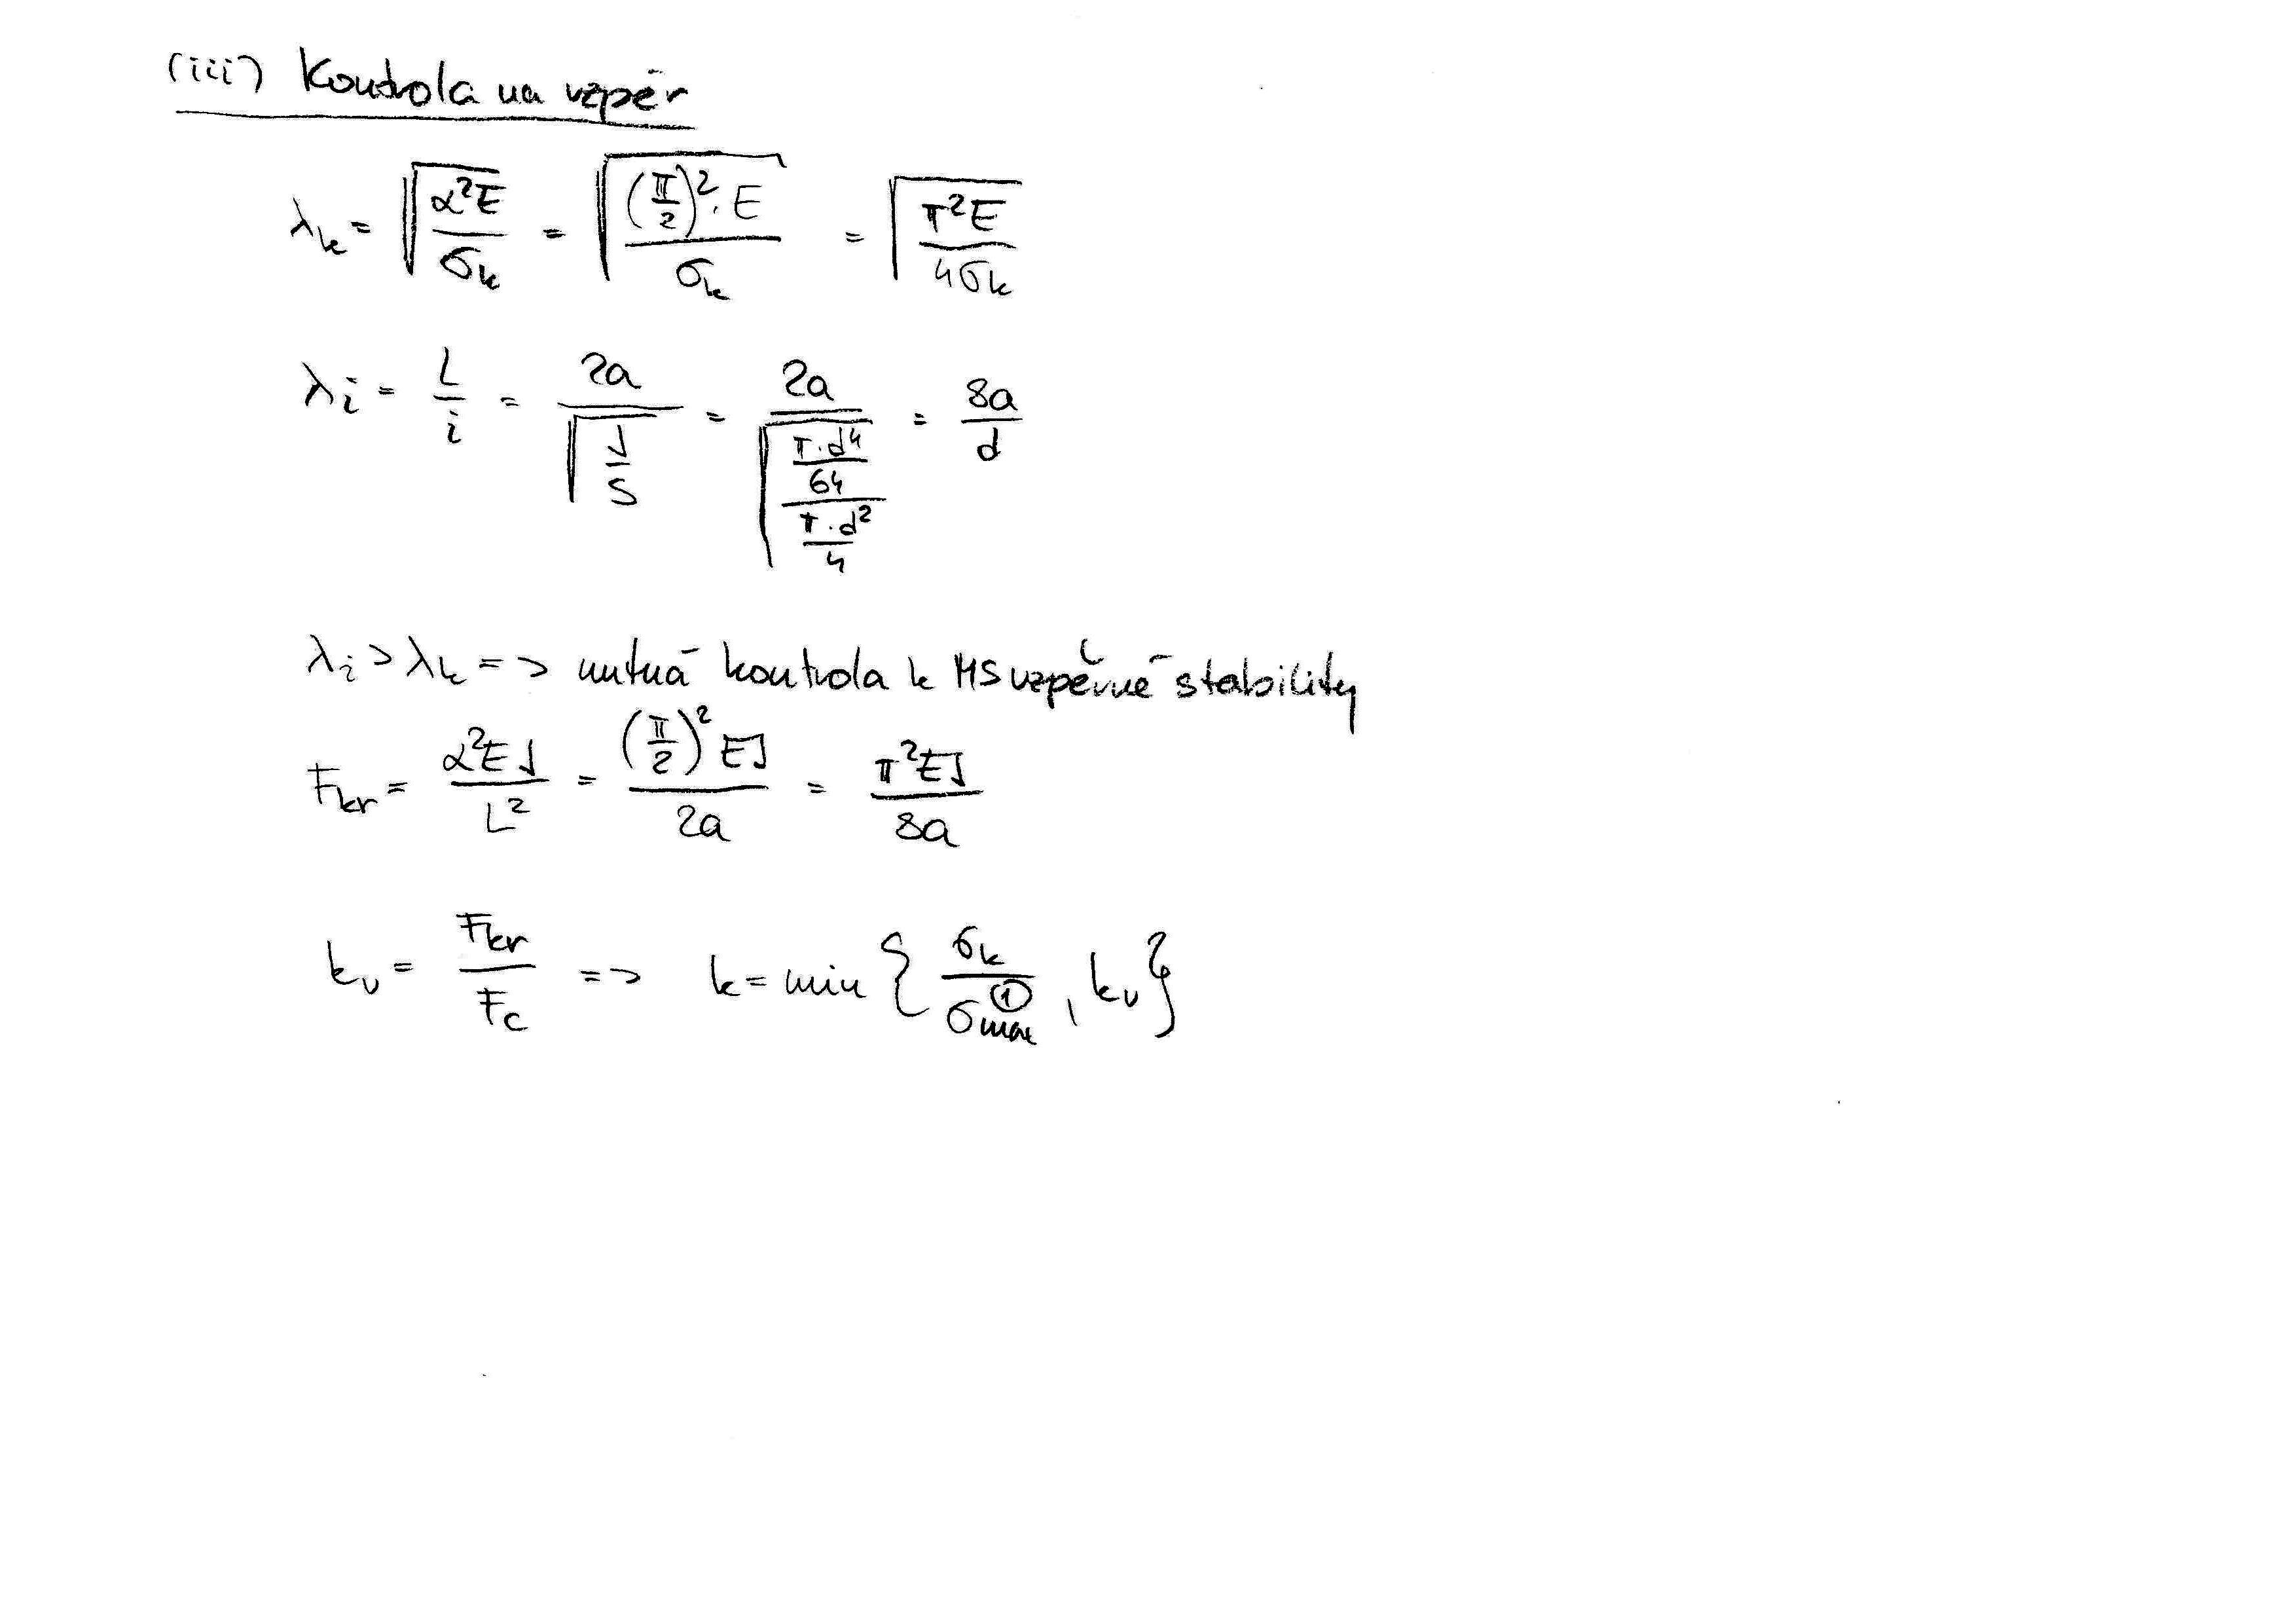 (iii) Kontrola na vzpěr
λ_k = √(α²E / σ_k) = √((π/2)² · E / σ_k) = √(π²E / 4σ_k)
λ_i = L / i = 2a / √(J / S) = 2a / √((π·d⁴ / 64) / (π·d² / 4)) = 8a / d
λ_i > λ_k => nutná kontrola k MS vzpěrné stability
F_kr = α²EJ / L² = (π/2)² EJ / 2a = π²EJ / 8a
k_v = F_kr / F_c => k = min {σ_k / σ_max^①, k_v}